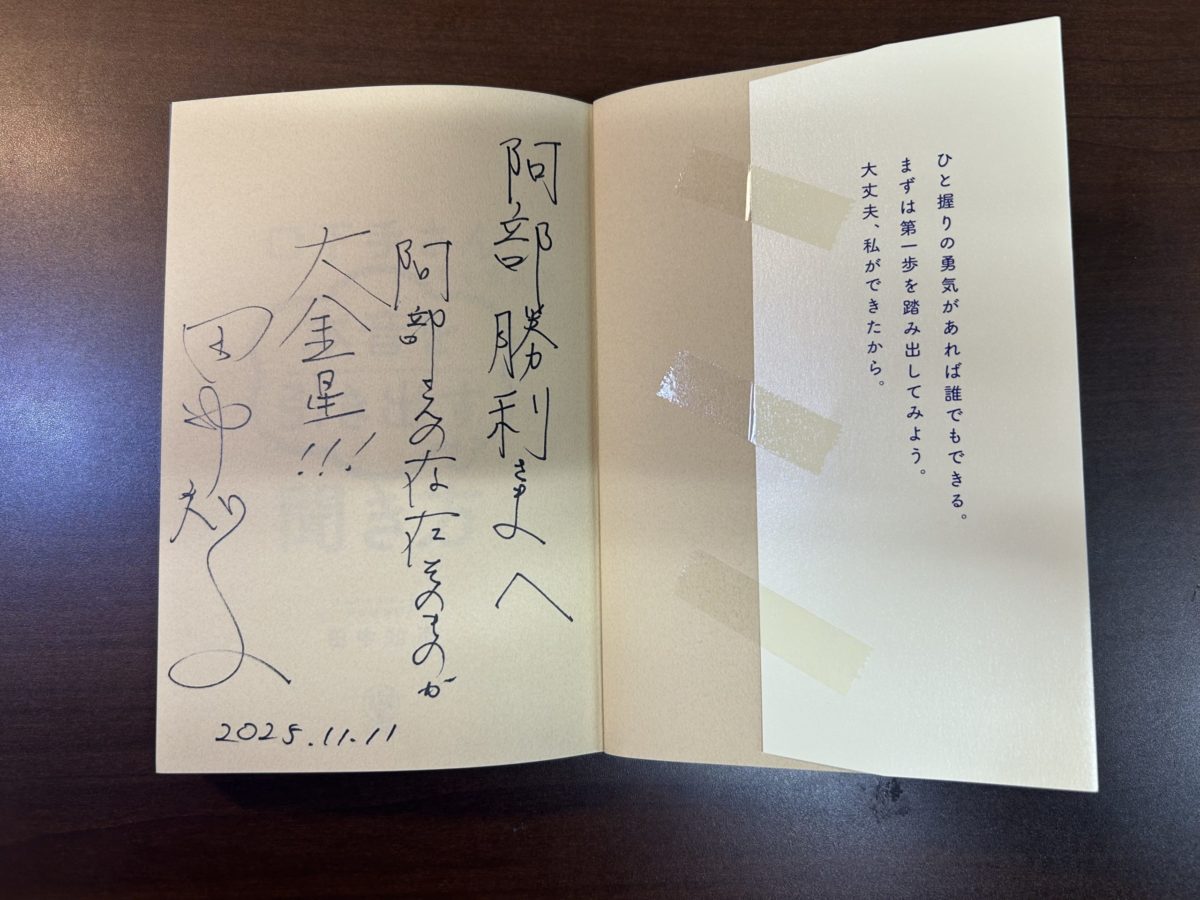 ひと握りの勇気があれば誰でもできる。
まずは第一歩を踏み出してみよう。
大丈夫、私ができたから。
阿部勝利さまへ
阿部さんの存在そのものが
大金星!!!
田中
2025.11.11